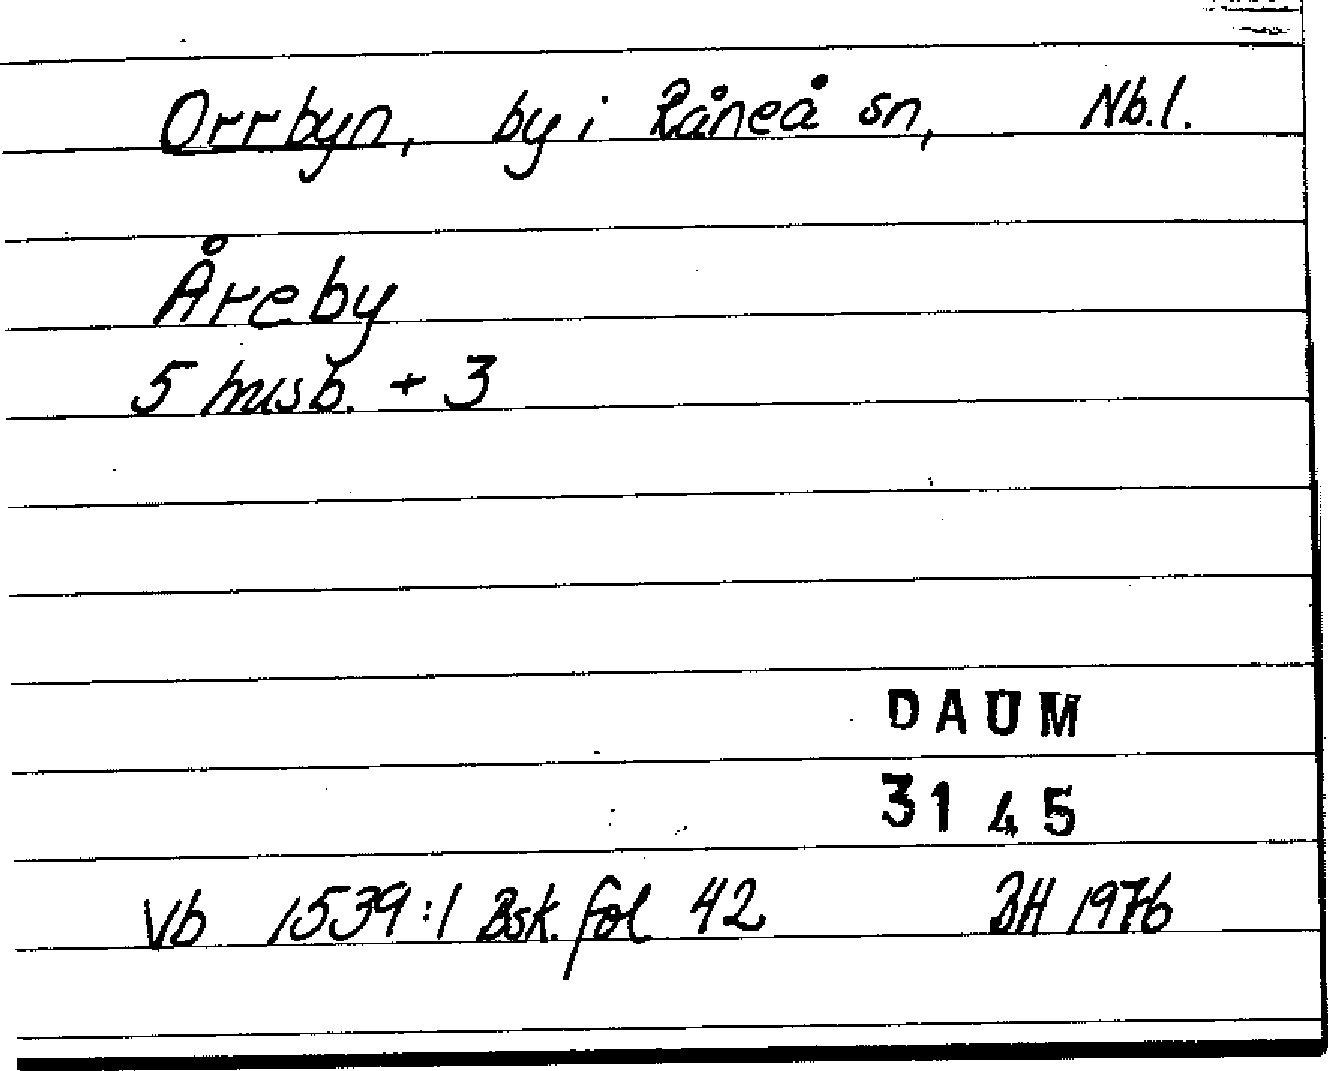 Orrbyn, by i Råneå sn, Nb.l.
Åreby
5 husb. + 3
DAUM
3145
Vb 1539:1 Bsk. fol 42 BH 1976